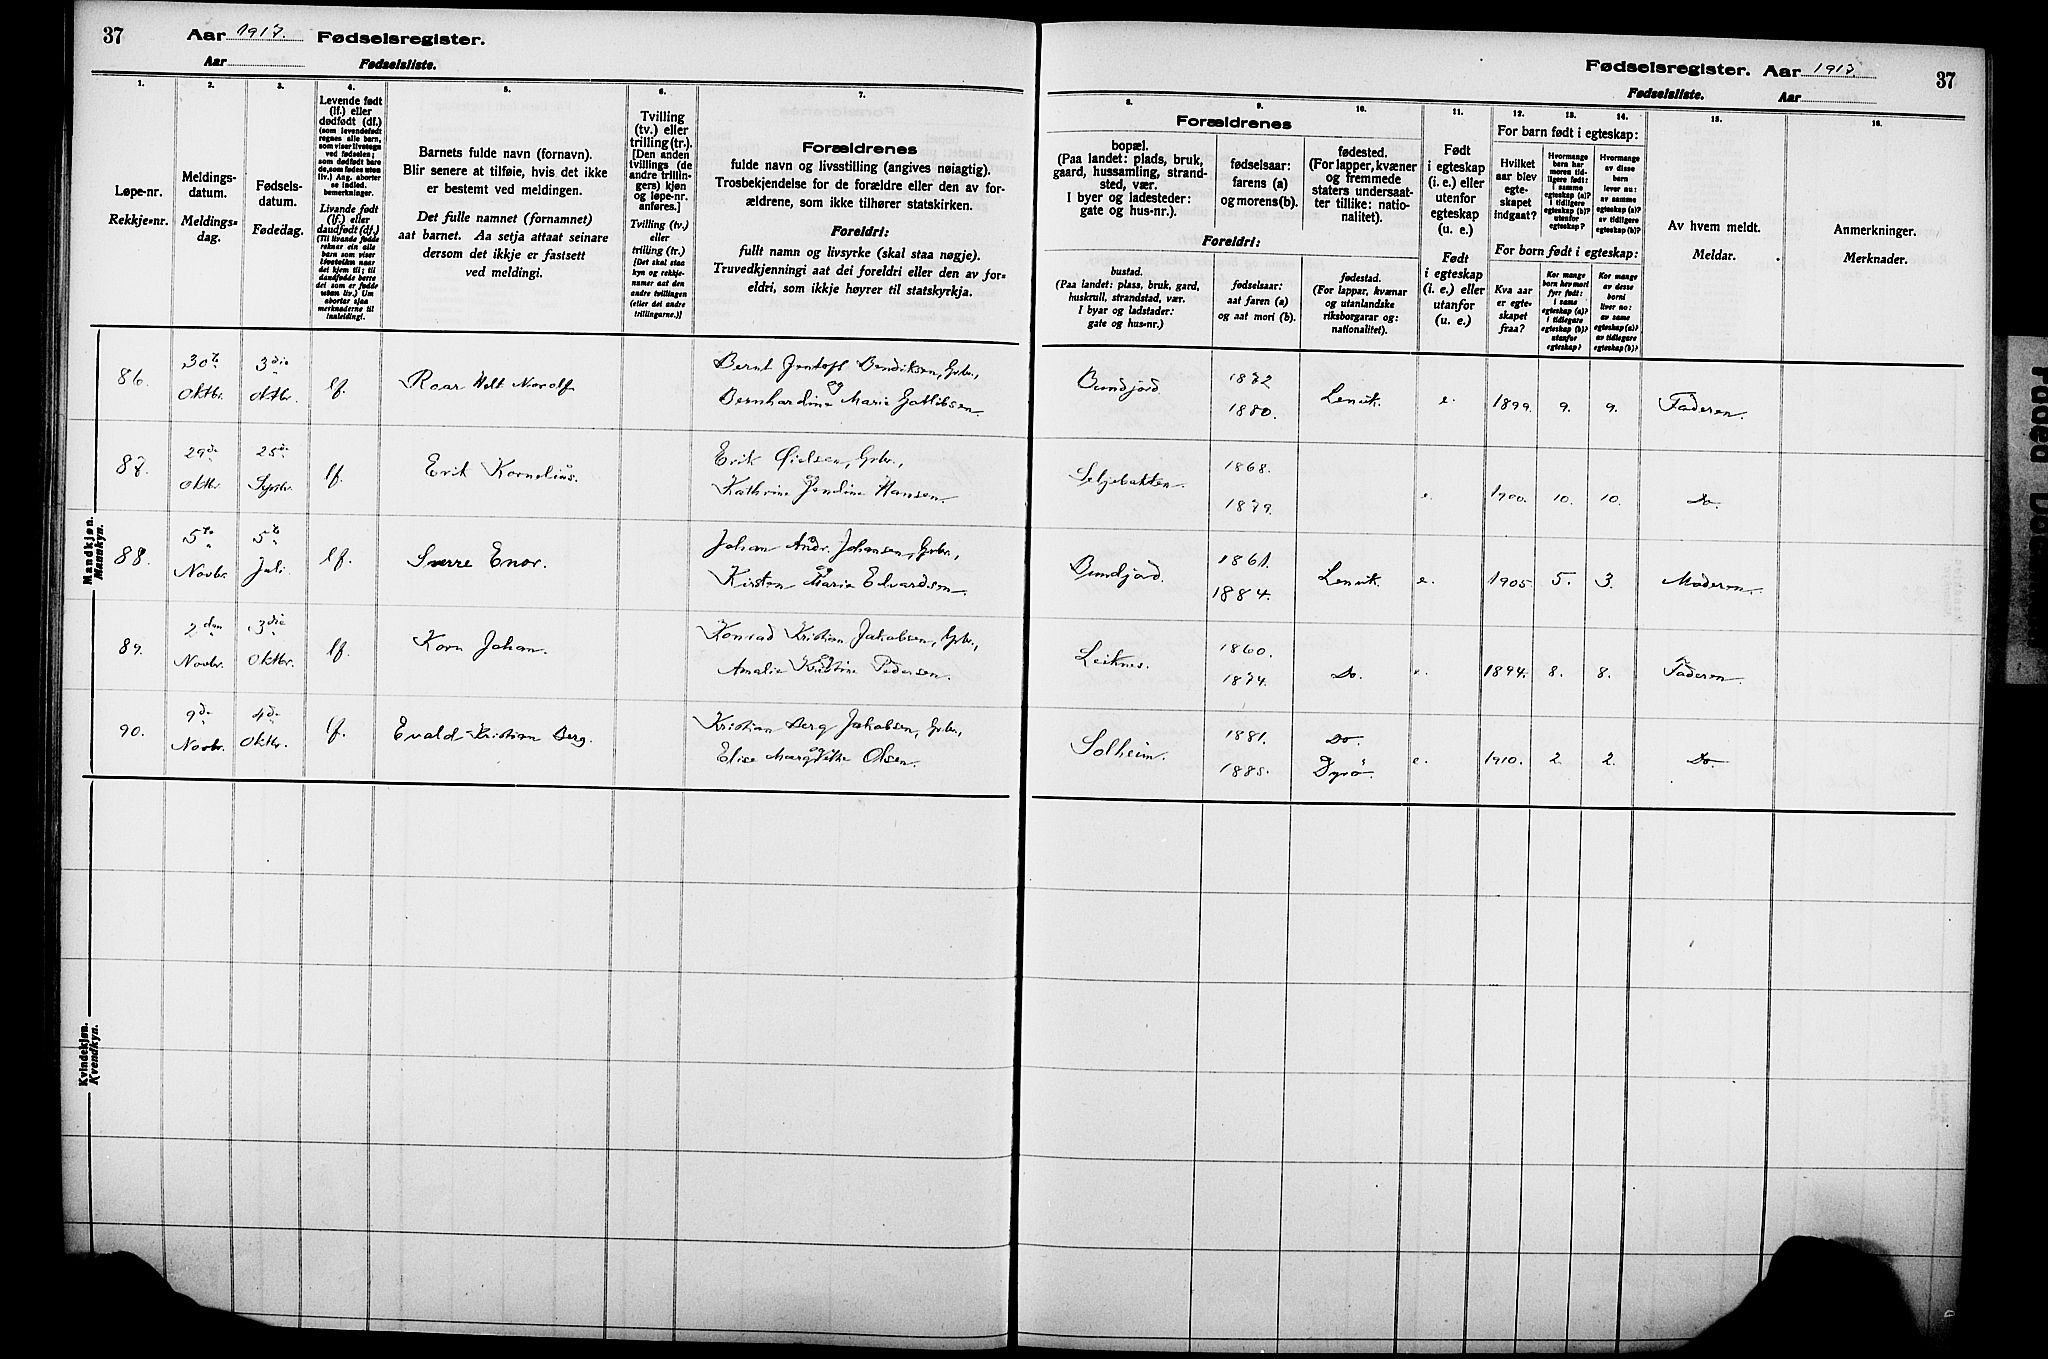 37 Aar 1917. Fødselsregister.
Aar Fødselsliste.
Fødselsregister. Aar 1917. 37
Fødselsliste. Aar
1.
Løpe-nr.
Rekkje-nr.
2.
Meldings-
datum.
Meldings-
dag.
3.
Fødsels-
datum.
Fødedag.
4.
Levende født
(lf.) eller
dødfødt (df.)
(som levendefødt
regnes alle barn,
som viser livstegn
ved fødselen;
som dødfødt bare
de, som fødes uten
liv.) Ang. aborter
se indled.
bemerkninger.
Livande født
(lf.) eller
daudfødt (df.)
5.
Barnets fulde navn (fornavn).
Blir senere at tilføie, hvis det ikke
er bestemt ved meldingen.
Det fulle namnet (fornamnet)
aat barnet. Aa setja attaat seinare
dersom det ikkje er fastsett
ved meldingi.
6.
Tvilling
(tv.) eller
trilling (tr.).
[Den anden
tvillings (de
andre trillin-
gers) kjøn
og løpe-nr.
anføres.]
Tvilling (tv.)
eller
trilling (tr.).
[Det skal staa
kyn og rekkje-
numer aat den
andre tvillingen
(eller dei andre
trillingarne.)]
7.
Forældrenes
fulde navn og livsstilling (angives nøiagtig).
Trosbekjendelse for de forældre eller den av for-
ældrene, som ikke tilhører statskirken.
Foreldri:
fullt namn og livsyrke (skal staa nøgje).
Truvedkjenningi aat dei foreldri eller den av for-
eldri, som ikkje høyrer til statskyrkja.
Forældrenes
8.
bopæl.
(Paa landet: plads, bruk,
gaard, hussamling, strand-
sted, vær.
I byer og ladesteder:
gate og hus-nr.).
9.
fødselsaar:
farens (a)
og morens (b).
10.
fødested.
(For lapper, kvæner
og fremmede
staters undersaat-
ter tillike: natio-
nalitet).
Foreldri:
bustad.
(Paa landet: plass, bruk, gard,
huskrull, strandstad, vær.
I byar og ladstader:
gate og hus-nr.)
fødselsaar:
aat faren (a)
og aat mori (b).
fødestad.
(For lappar, kvænar
og utanlandske
riksborgarar og:
nationalitet).
11.
Født
i egteskap
(i. e.) eller
utenfor
egteskap
(u. e.)
Født
i egteskap
(i. e.) eller
utanfor
(u. e.)
12. 13. 14.
For barn født i egteskap:
Hvilket
aar blev
egte-
skapet
indgaat?
Hvormange
barn har
moren tid-
ligere født:
i samme
egteskap (a)?
i tidligere
egteskap (b)?
utenfor
egteskap?
Hvormange
av disse
barn
lever nu:
av samme
egteskap (a)?
av tidligere
egteskap (b)?
For born født i egteskap:
Kva aar
er egte-
skapet
fraa?
Kor mange
born hev mori
fyrr født:
i same
egteskap (a)?
i tidlegare
egteskap (b)?
utanfor
egteskap?
Kor mange
av desse
borni
liver no:
av same
egteskap (a)?
av tidlegare
egteskap (b)?
15.
Av hvem meldt.
Meldar.
16.
Anmerkninger.
Merknader.
Mandkjøn.
Mannkyn.
86. 30te Oktbr. 3die Oktbr. lf. Roar Holt Nordolf
Bernt Jentoft Bendiksen, Grbr.,
og
Bernhardine Marie Gottlibsen
Bundjord 1872 1880. Lenvik. e. 1899. 9. 9. Faderen.
87. 29de Oktbr. 25de Septbr. lf. Erik Kornelius.
Erik Øielsen, Grbr.,
Kathrine Jendine Hansen.
Seljebakken. 1868. 1879. e. 1900. 10. 10. Do.
88. 5te Novbr. 5te Juli. lf. Sverre Enor.
Johan Andr. Johansen, Grbr.,
og
Kirsten Marie Edvardsen.
Bundjord. 1861. 1884. Lenvik e. 1905. 5. 3. Moderen.
89. 2den Novbr. 3die Oktbr. lf. Korn Johan.
Konrad Kristian Jakobsen, Grbr.,
og
Amalie Kristine Pedersen.
Leiknes. 1860. 1874. Do. e. 1894. 8. 8. Faderen.
90. 9de Novbr. 4de Oktbr. lf. Evald Kristian Berg.
Kristian Berg Jakobsen, Grbr.,
og
Elise Margrethe Olsen.
Solheim. 1881. 1885. Do. Dyrö. e. 1910. 2. 2. Do.
Kvindekjøn.
Kvendkyn.